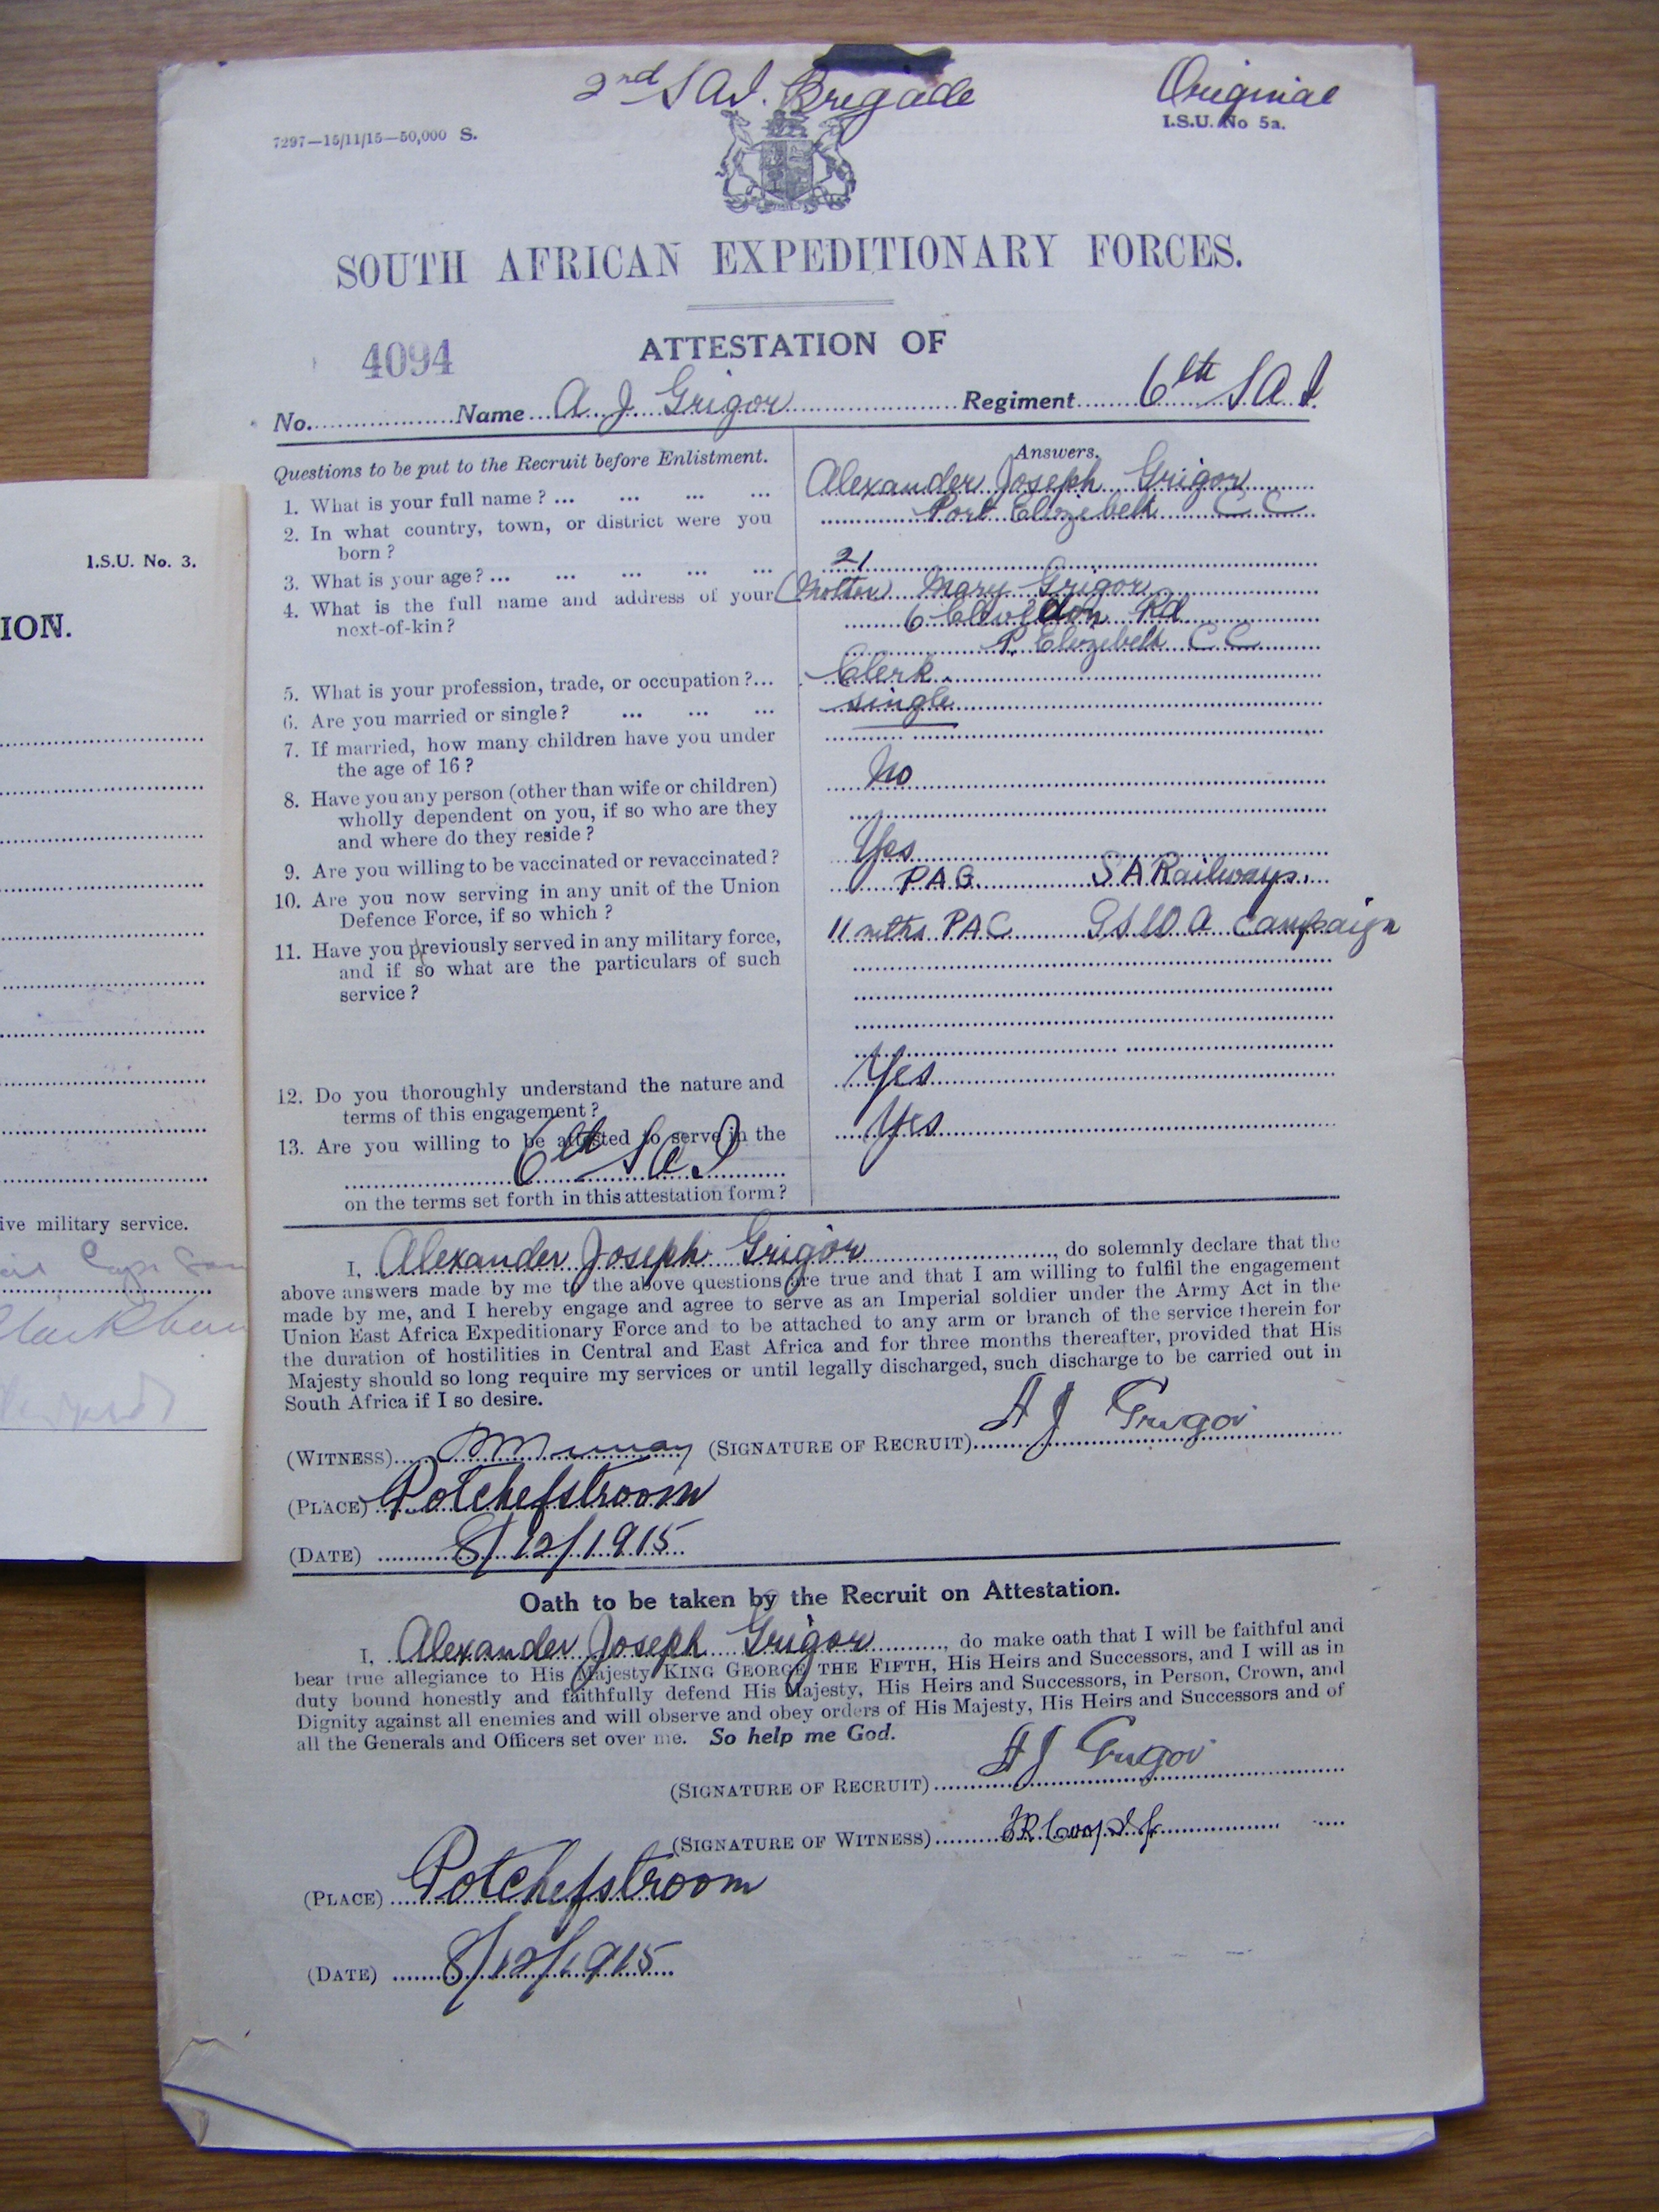 2nd S A I. Brigade
Original
7297—15/11/15—50,000 S.
I.S.U. No 5a.
SOUTH AFRICAN EXPEDITIONARY FORCES.
4094
ATTESTATION OF
No. Name A. J. Grigor Regiment 6th S A I.
Questions to be put to the Recruit before Enlistment.
Answers.
1. What is your full name? ... ... ... ...
Alexander Joseph Grigor
2. In what country, town, or district were you
born?
Port Elizabeth C C
3. What is your age? ... ... ... ... ...
21
4. What is the full name and address of your
next-of-kin?
(Mother) Mary Grigor
6 Rd
P. Elizabeth C C
5. What is your profession, trade, or occupation?...
Clerk.
6. Are you married or single? ... ... ...
single
7. If married, how many children have you under
the age of 16?
8. Have you any person (other than wife or children)
wholly dependent on you, if so who are they
and where do they reside?
No
9. Are you willing to be vaccinated or revaccinated?
Yes
10. Are you now serving in any unit of the Union
Defence Force, if so which?
P A G S A Railways.
11. Have you previously served in any military force,
and if so what are the particulars of such
service?
11 mths P A G G S W A campaign
12. Do you thoroughly understand the nature and
terms of this engagement?
Yes
13. Are you willing to be attested to serve in the
6th S A I
on the terms set forth in this attestation form?
Yes
I, Alexander Joseph Grigor, do solemnly declare that the
above answers made by me to the above questions are true and that I am willing to fulfil the engagement
made by me, and I hereby engage and agree to serve as an Imperial soldier under the Army Act in the
Union East Africa Expeditionary Force and to be attached to any arm or branch of the service therein for
the duration of hostilities in Central and East Africa and for three months thereafter, provided that His
Majesty should so long require my services or until legally discharged, such discharge to be carried out in
South Africa if I so desire.
(WITNESS) Murray (SIGNATURE OF RECRUIT) A J Grigor
(PLACE) Potchefstroom
(DATE) 8/12/1915
Oath to be taken by the Recruit on Attestation.
I, Alexander Joseph Grigor, do make oath that I will be faithful and
bear true allegiance to His Majesty KING GEORGE THE FIFTH, His Heirs and Successors, and I will as in
duty bound honestly and faithfully defend His Majesty, His Heirs and Successors, in Person, Crown, and
Dignity against all enemies and will observe and obey orders of His Majesty, His Heirs and Successors and of
all the Generals and Officers set over me. So help me God.
(SIGNATURE OF RECRUIT) A J Grigor
(SIGNATURE OF WITNESS)
(PLACE) Potchefstroom
(DATE) 8/12/1915
I.S.U. No. 3.
ION.
ive military service.